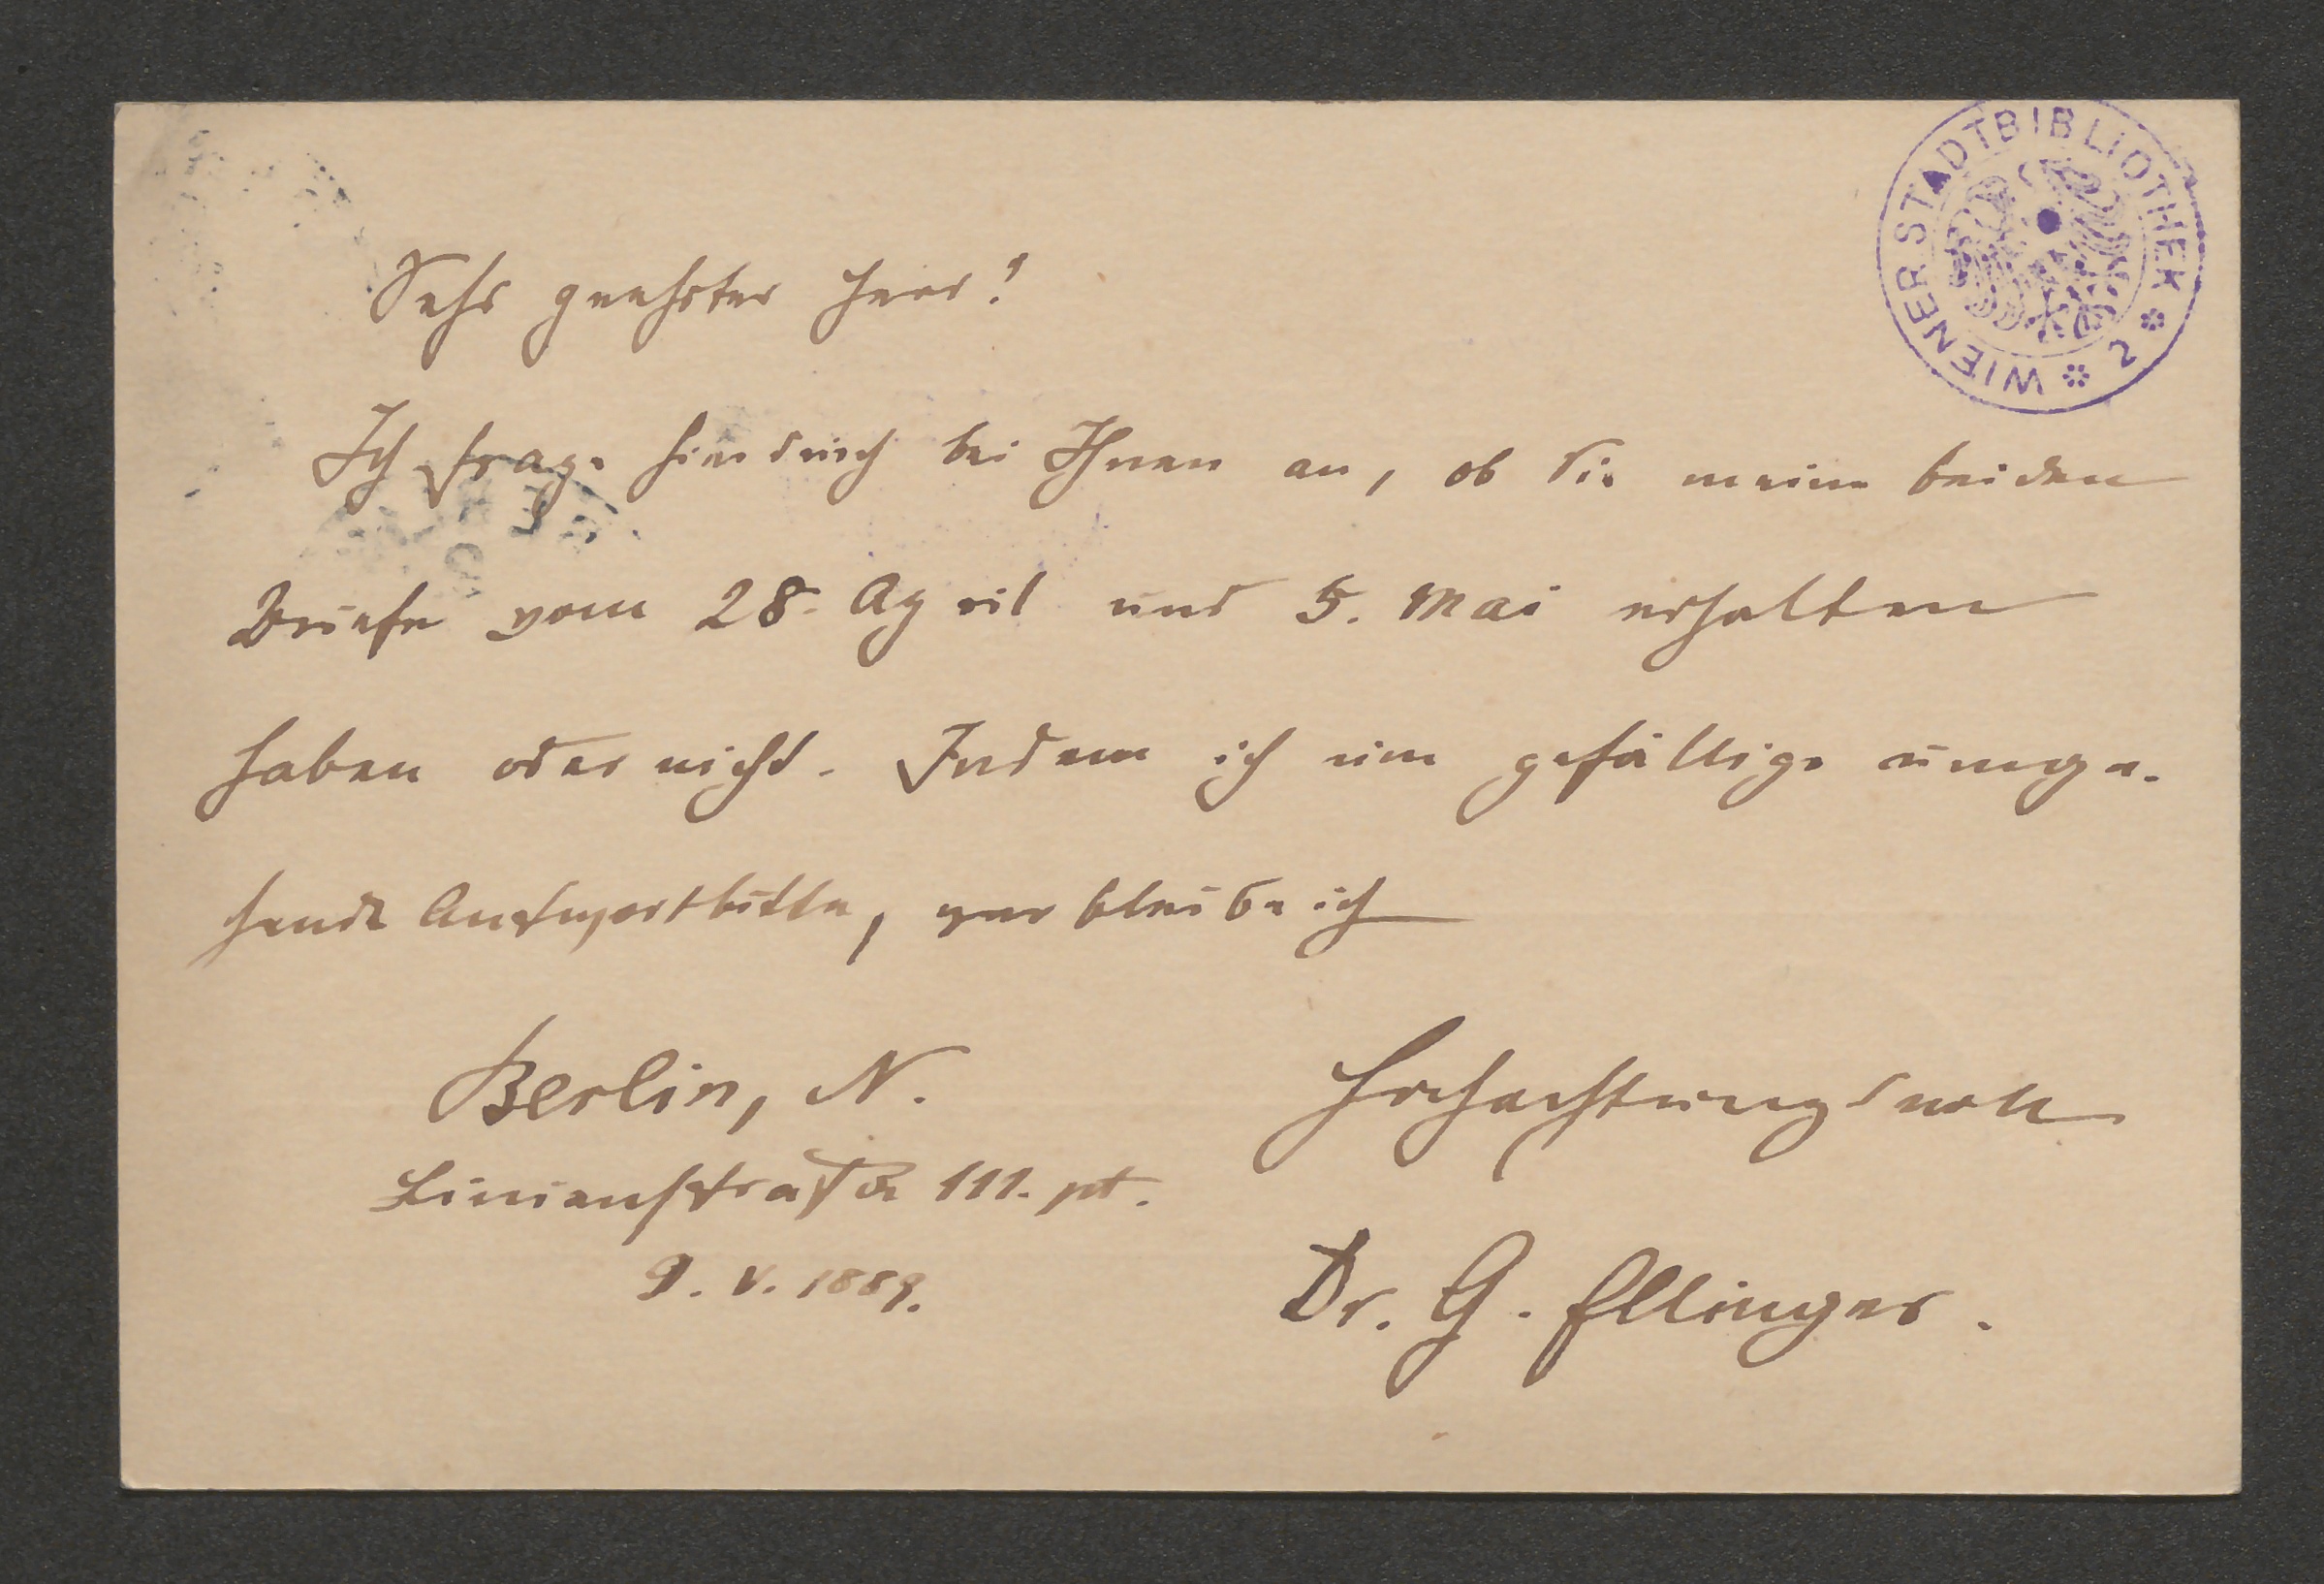 WIENER STADTBIBLIOTHEK * 2 *
Sehr geehrter Herr!
Ich frage hierdurch bei Ihnen an, ob Sie meine beiden
Briefe vom 28. April und 5. Mai erhalten
haben oder nicht. Indem ich um gefällige umge-
hende Antwort bitte, verbleibe ich
Hochachtungsvoll
Dr. G. Ellinger.
Berlin, N.
Linienstraße 111. pt.
9. V. 1889.